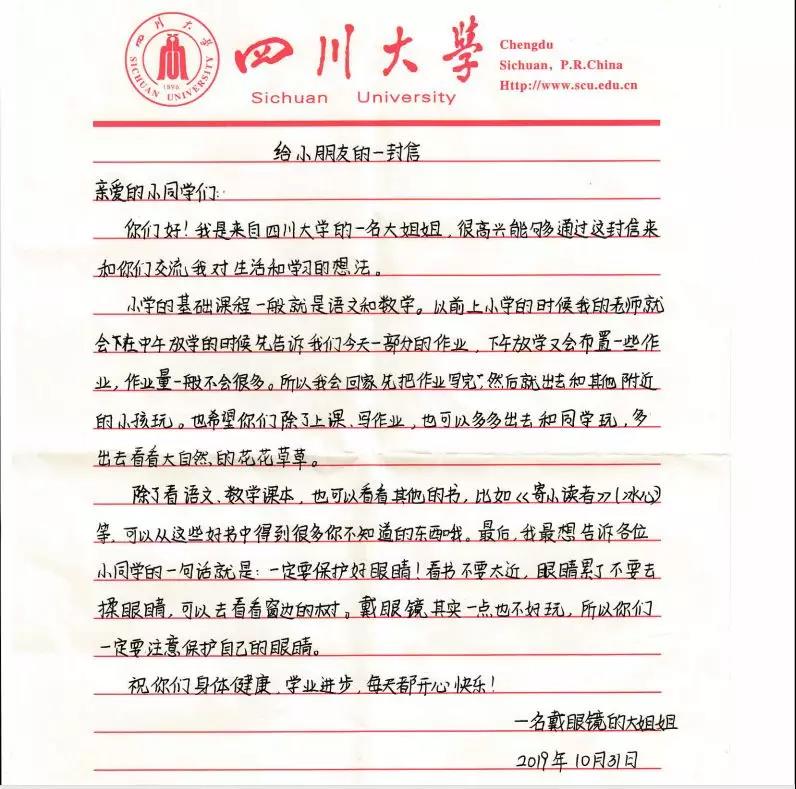 四川大学
SICHUAN UNIVERSITY
1896
四川大學
Sichuan University
Chengdu
Sichuan, P.R.China
Http://www.scu.edu.cn
给小朋友的一封信
亲爱的小同学们:
你们好!我是来自四川大学的一名大姐姐,很高兴能够通过这封信来
和你们交流我对生活和学习的想法。
小学的基础课程一般就是语文和数学。以前上小学的时候我的老师就
会下在中午放学的时候先告诉我们今天一部分的作业,下午放学又会布置一些作
业,作业量一般不会很多。所以我会回家先把作业写完,然后就出去和其他附近
的小孩玩。也希望你们除了上课、写作业,也可以多多出去和同学玩,多
出去看看大自然的花花草草。
除了看语文、数学课本,也可以看看其他的书,比如《寄小读者》(冰心)
等,可以从这些好书中得到很多你不知道的东西哦。最后,我最想告诉各位
小同学的一句话就是:一定要保护好眼睛!看书不要太近,眼睛累了不要去
揉眼睛,可以去看看窗边的树。戴眼镜其实一点也不好玩,所以你们
一定要注意保护自己的眼睛。
祝你们身体健康,学业进步,每天都开心快乐!
一名戴眼镜的大姐姐
2019年10月31日